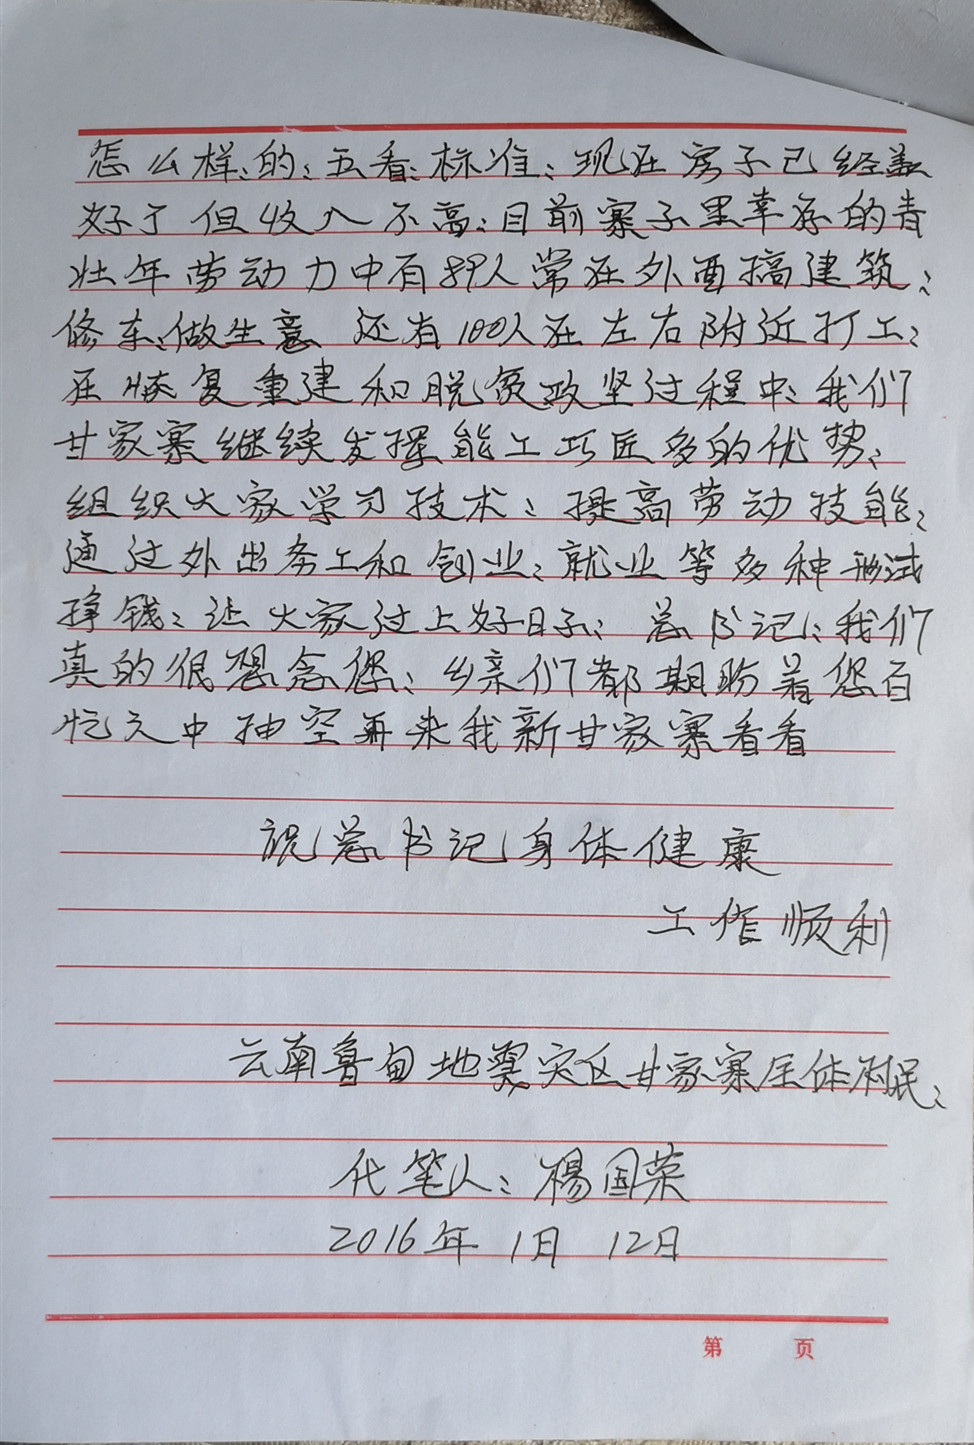 怎么样的、五看、标准、现在房子已经盖
好了但收入不高、目前寨子里幸存的青
壮年劳动力中有89人常在外面搞建筑、
修车、做生意 还有100人在左右附近打工、
在恢复重建和脱贫攻坚过程中、我们
甘家寨继续发挥能工巧匠多的优势、
组织大家学习技术、提高劳动技能、
通过外出务工和创业、就业等多种形式
挣钱、让大家过上好日子、总书记、我们
真的很想念您、乡亲们都期盼着您百
忙之中抽空再来我新甘家寨看看
祝总书记身体健康
工作顺利
云南鲁甸地震灾区甘家寨全体村民、
代笔人：楊国荣
2016年1月12日
第 页